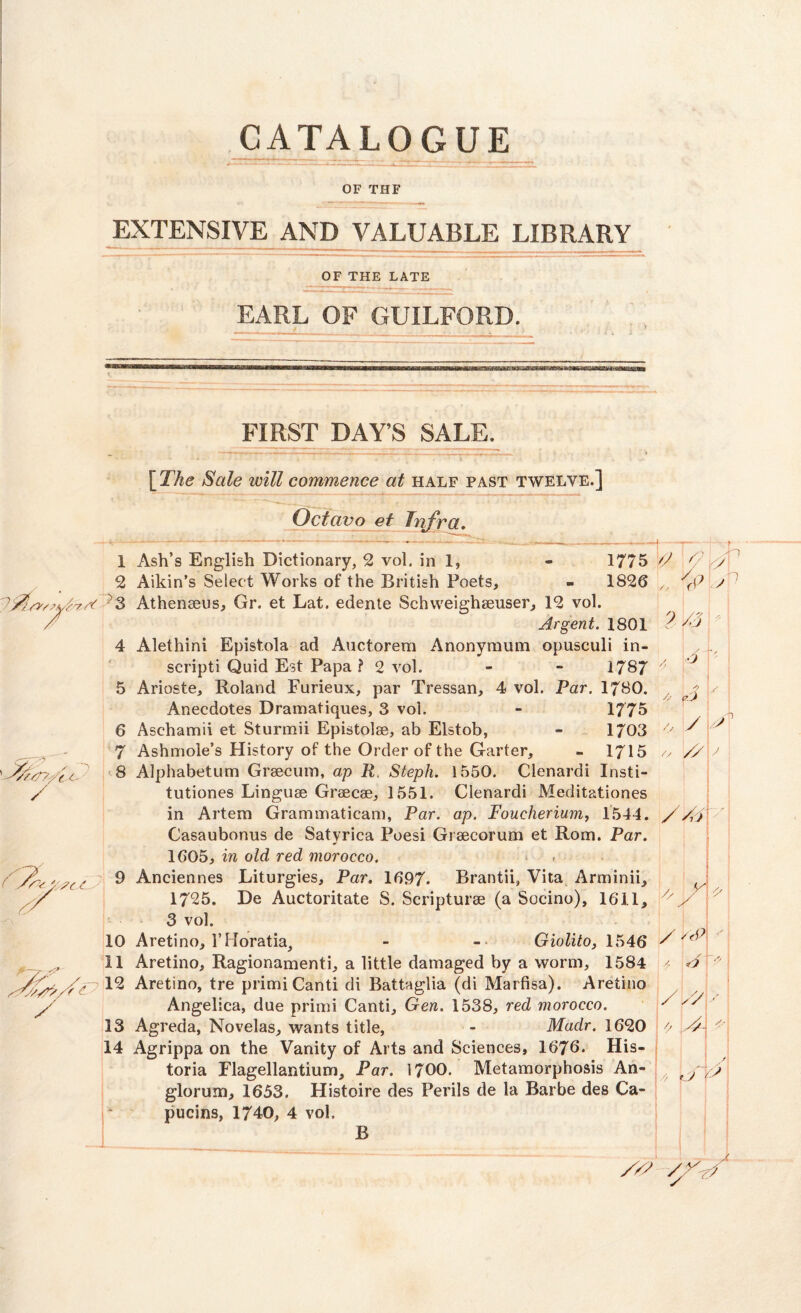 CATALOGUE
OF THF
EXTENSIVE AND VALUABLE LIBRARY
OF THE LATE
EARL OF GUILFORD.
FIRST DAY'S SALE.
[The Sale will commence at HALF PAST TWELVE.]
Octavo et Infra.
1 Ash's English Dictionary, 2 vol. in 1, - 1775
2 Aikin's Select Works of the British Poets, - 1826
3 Athenæus, Gr. et Lat. edente Schweighæuser, 12 vol.
Argent. 1801
4 Alethini Epistola ad Auctorem Anonymum opusculi in-
scripti Quid Est Papa? 2 vol. - - 1787
5 Arioste, Roland Furieux, par Tressan, 4 vol. Par. 1780.
Anecdotes Dramatiques, 3 vol. - 1775
6 Aschamii et Sturmii Epistolæ, ab Elstob, - 1703
7 Ashmole's History of the Order of the Garter, - 1715
8 Alphabetum Græcum, ap R. Steph. 1550. Clenardi Insti-
tutiones Linguæ Græcæ, 1551. Clenardi Meditationes
in Artem Grammaticam, Par. ap. Foucherium, 1544.
Casaubonus de Satyrica Poesi Græcorum et Rom. Par.
1605, in old red morocco.
9 Anciennes Liturgies, Par. 1697. Brantii, Vita Arminii,
1725. De Auctoritate S. Scripturæ (a Socino), 1611,
3 vol.
10 Aretino, l'Horatia, - - Giolito, 1546
11 Aretino, Ragionamenti, a little damaged by a worm, 1584
12 Aretino, tre primi Canti di Battaglia (di Marfisa). Aretino
Angelica, due primi Canti, Gen. 1538, red morocco.
13 Agreda, Novelas, wants title, - Madr. 1620
14 Agrippa on the Vanity of Arts and Sciences, 1676. His-
toria Flagellantium, Par. 1700. Metamorphosis An-
glorum, 1653. Histoire des Perils de la Barbe des Ca-
pucins, 1740, 4 vol.
B